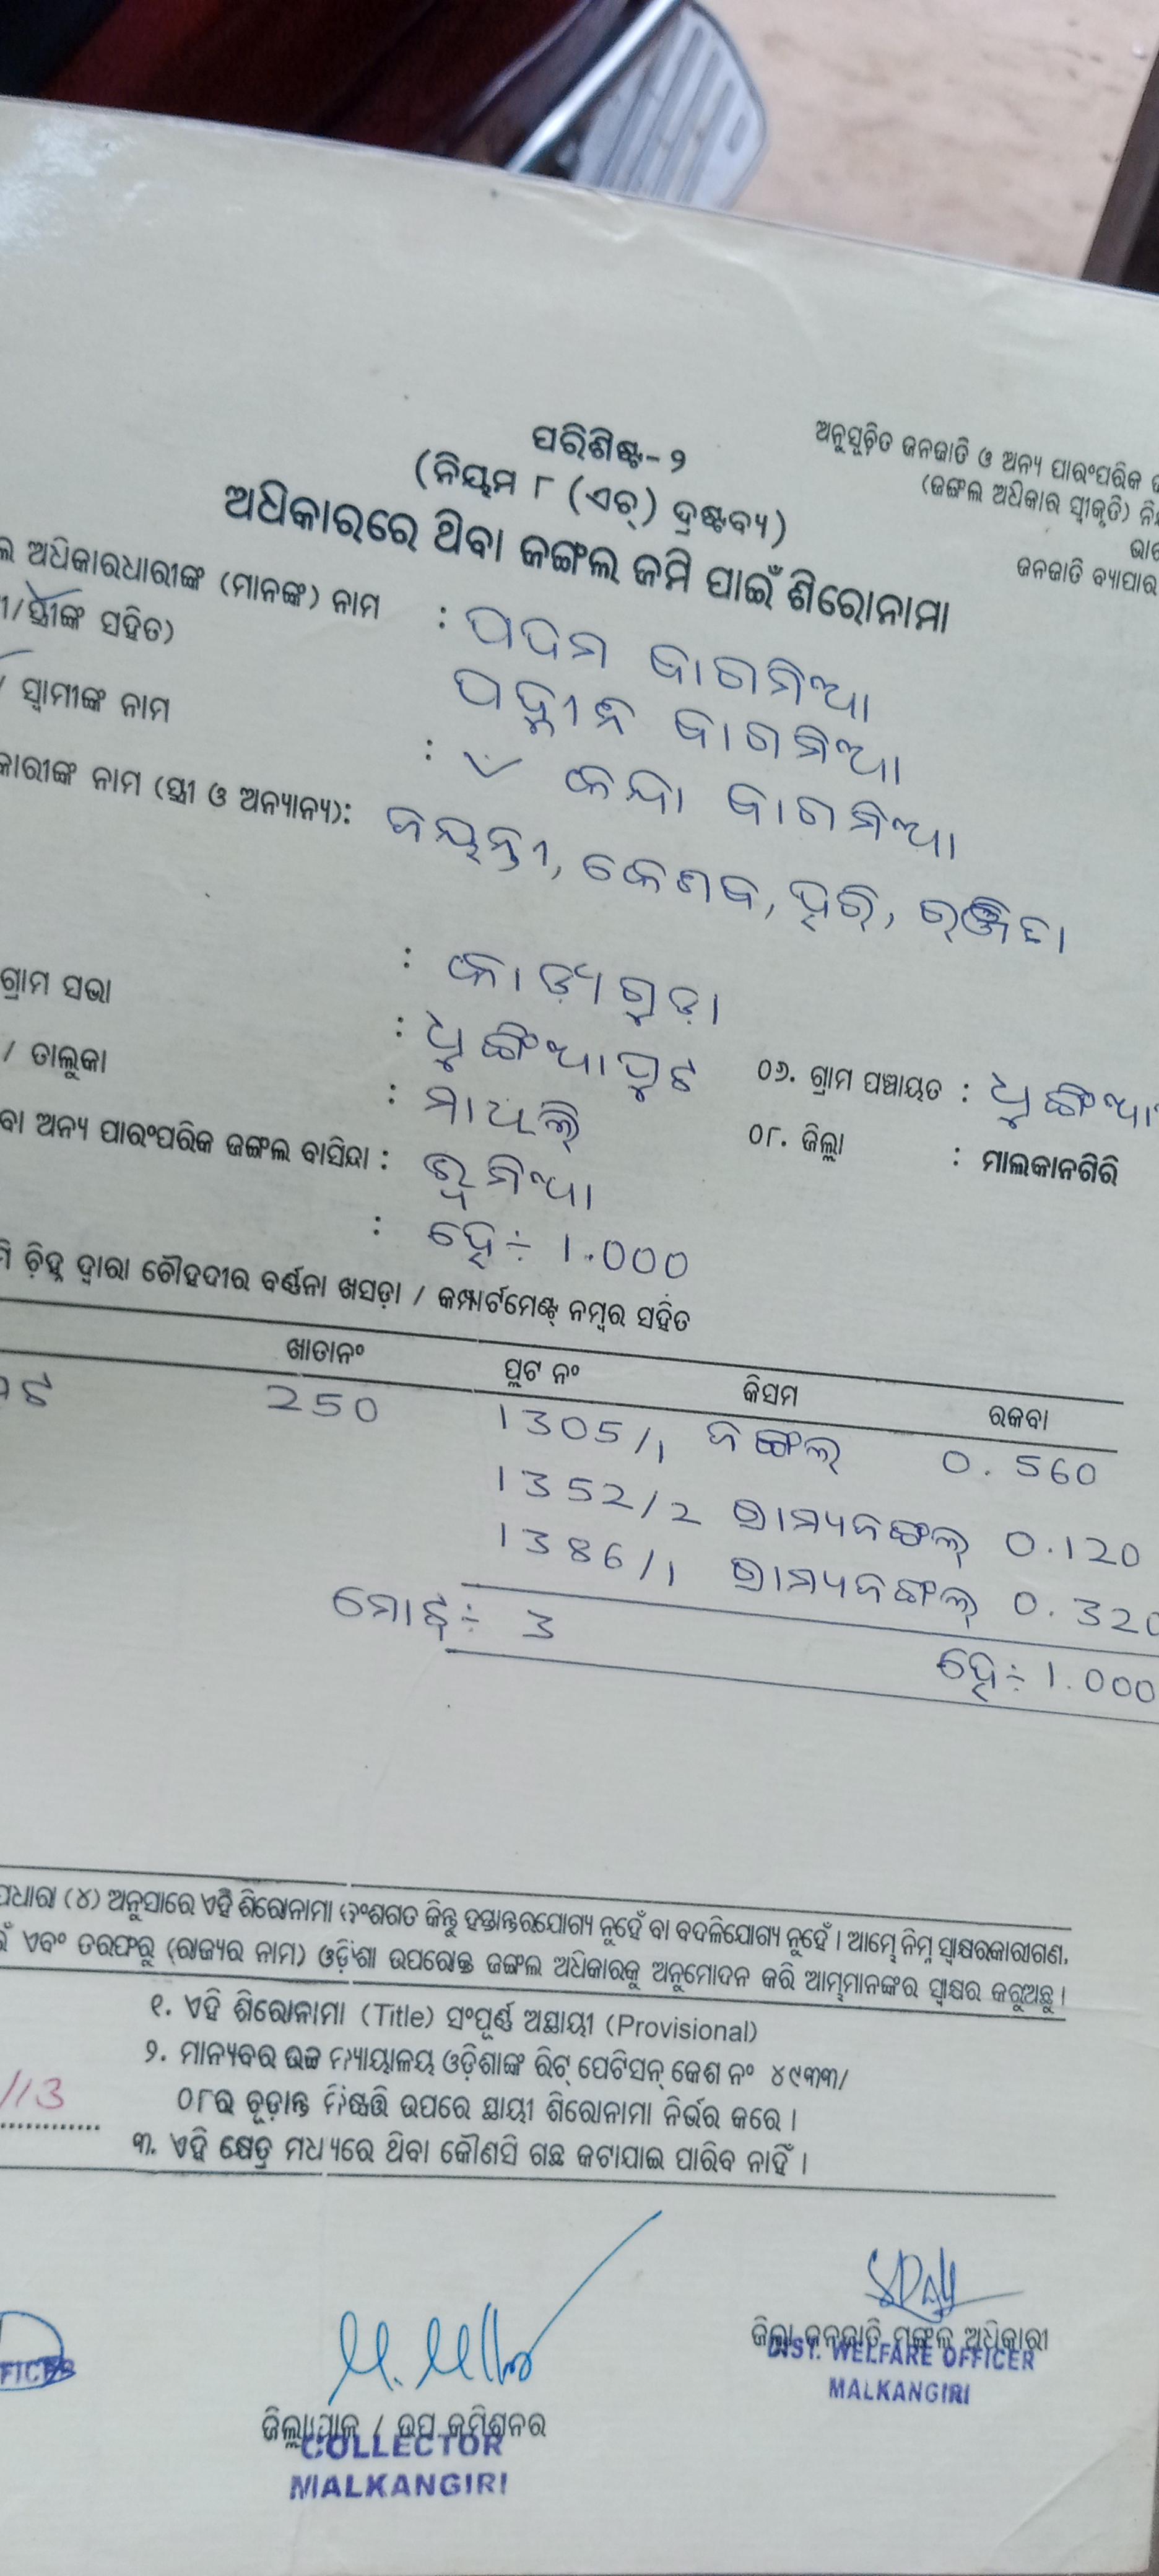 ପରିଶିଷ୍ଟ-୨
(ନିୟମ ୮ (ଏଚ୍) ଦ୍ରଷ୍ଟବ୍ୟ)
ଅନୁସୂଚିତ ଜନଜାତି ଓ ଅନ୍ୟ ପାରଂପରିକ
(ଜଙ୍ଗଲ ଅଧିକାର ସ୍ୱୀକୃତି)
ଜନଜାତି ବ୍ୟାପାର
ଅଧିକାରରେ ଥିବା ଜଙ୍ଗଲ ଜମି ପାଇଁ ଶିରୋନାମା
ଅଧିକାରଧାରୀଙ୍କ (ମାନଙ୍କ) ନାମ : ପଦମ ବାଗବିଆ
/ସ୍ତ୍ରୀଙ୍କ ସହିତ) ବାଗବିଆ
/ ସ୍ୱାମୀଙ୍କ ନାମ : କେନ୍ଦା ବାଗବିଆ
କାରୀଙ୍କ ନାମ (ସ୍ତ୍ରୀ ଓ ଅନ୍ୟାନ୍ୟ): ଜୟନ୍ତୀ, କେଶବ, ହରି, ରଞ୍ଜିତା
ଗ୍ରାମ ସଭା :
/ ତାଲୁକା : ମାଥିଲି
୦୬. ଗ୍ରାମ ପଞ୍ଚାୟତ :
୦୮. ଜିଲ୍ଲା : ମାଲକାନଗିରି
ବା ଅନ୍ୟ ପାରଂପରିକ ଜଙ୍ଗଲ ବାସିନ୍ଦା :
: ହେ÷ 1.000
ଚିହ୍ନ ଦ୍ୱାରା ଚୌହଦୀର ବର୍ଣ୍ଣନା ଖସଡ଼ା / କମ୍ପାର୍ଟମେଣ୍ଟ୍ ନମ୍ବର ସହିତ
ଖାତାନଂ ପ୍ଲଟ ନଂ କିସମ ରକବା
250 1305/1 ଜଙ୍ଗଲ 0.560
1352/2 ଗ୍ରାମ୍ୟଜଙ୍ଗଲ 0.120
1386/1 ଗ୍ରାମ୍ୟଜଙ୍ଗଲ 0.320
ମୋଟ÷ 3 ହେ÷ 1.000
(୪) ଅନୁସାରେ ଏହି ଶିରୋନାମା ବଂଶଗତ କିନ୍ତୁ ହସ୍ତାନ୍ତରଯୋଗ୍ୟ ନୁହେଁ ବା ବଦଳିଯୋଗ୍ୟ ନୁହେଁ । ଆମ୍ଭେ ନିମ୍ନ ସ୍ୱାକ୍ଷରକାରୀଗଣ,
ଏବଂ ତରଫରୁ (ରାଜ୍ୟର ନାମ) ଓଡ଼ିଶା ଉପରୋକ୍ତ ଜଙ୍ଗଲ ଅଧିକାରକୁ ଅନୁମୋଦନ କରି ଆମ୍ଭମାନଙ୍କର ସ୍ୱାକ୍ଷର କରୁଅଛୁ ।
୧. ଏହି ଶିରୋନାମା (Title) ସଂପୂର୍ଣ୍ଣ ଅସ୍ଥାୟୀ (Provisional)
୨. ମାନ୍ୟବର ଉଚ୍ଚ ନ୍ୟାୟାଳୟ ଓଡ଼ିଶାଙ୍କ ରିଟ୍ ପେଟିସନ୍ କେଶ ନଂ ୪୯୩୩/
୦୮ର ଚୂଡ଼ାନ୍ତ ନିଷ୍ପତ୍ତି ଉପରେ ସ୍ଥାୟୀ ଶିରୋନାମା ନିର୍ଭର କରେ ।
/13
୩. ଏହି କ୍ଷେତ୍ର ମଧ୍ୟରେ ଥିବା କୌଣସି ଗଛ କଟାଯାଇ ପାରିବ ନାହିଁ ।
ଜିଲ୍ଲା ଜନଜାତି ମଙ୍ଗଳ ଅଧିକାରୀ
DIST. WELFARE OFFICER
MALKANGIRI
ଜିଲ୍ଲାପାଳ / ଉପ କମିଶନର
COLLECTOR
MALKANGIRI